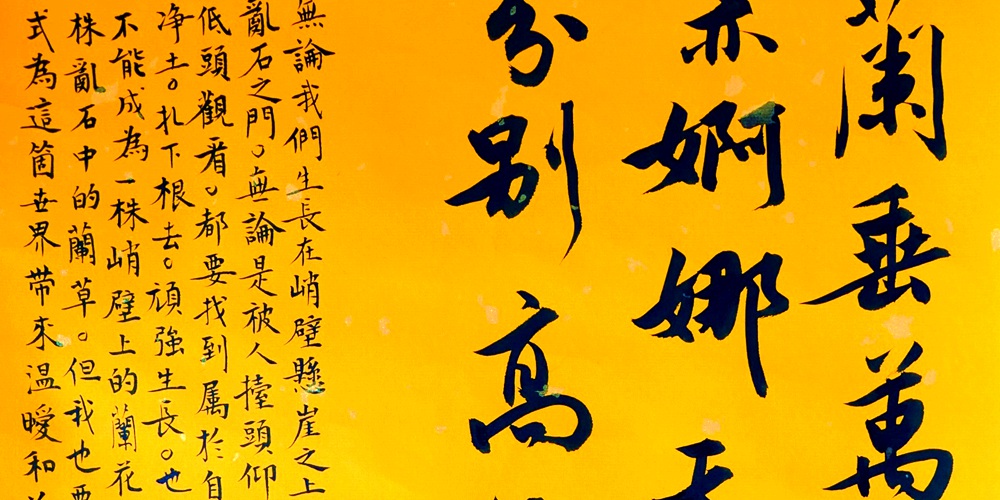 蘭垂萬
亦婀娜
分别高
無論我們生長在峭壁懸崖之上
亂石之門。無論是被人擡頭仰
低頭觀看。都要找到属於自
净土。扎下根去。頑強生長。也
不能成為一株峭壁上的蘭花
株亂石中的蘭草。但我也要
式為這箇世界带來温曖和